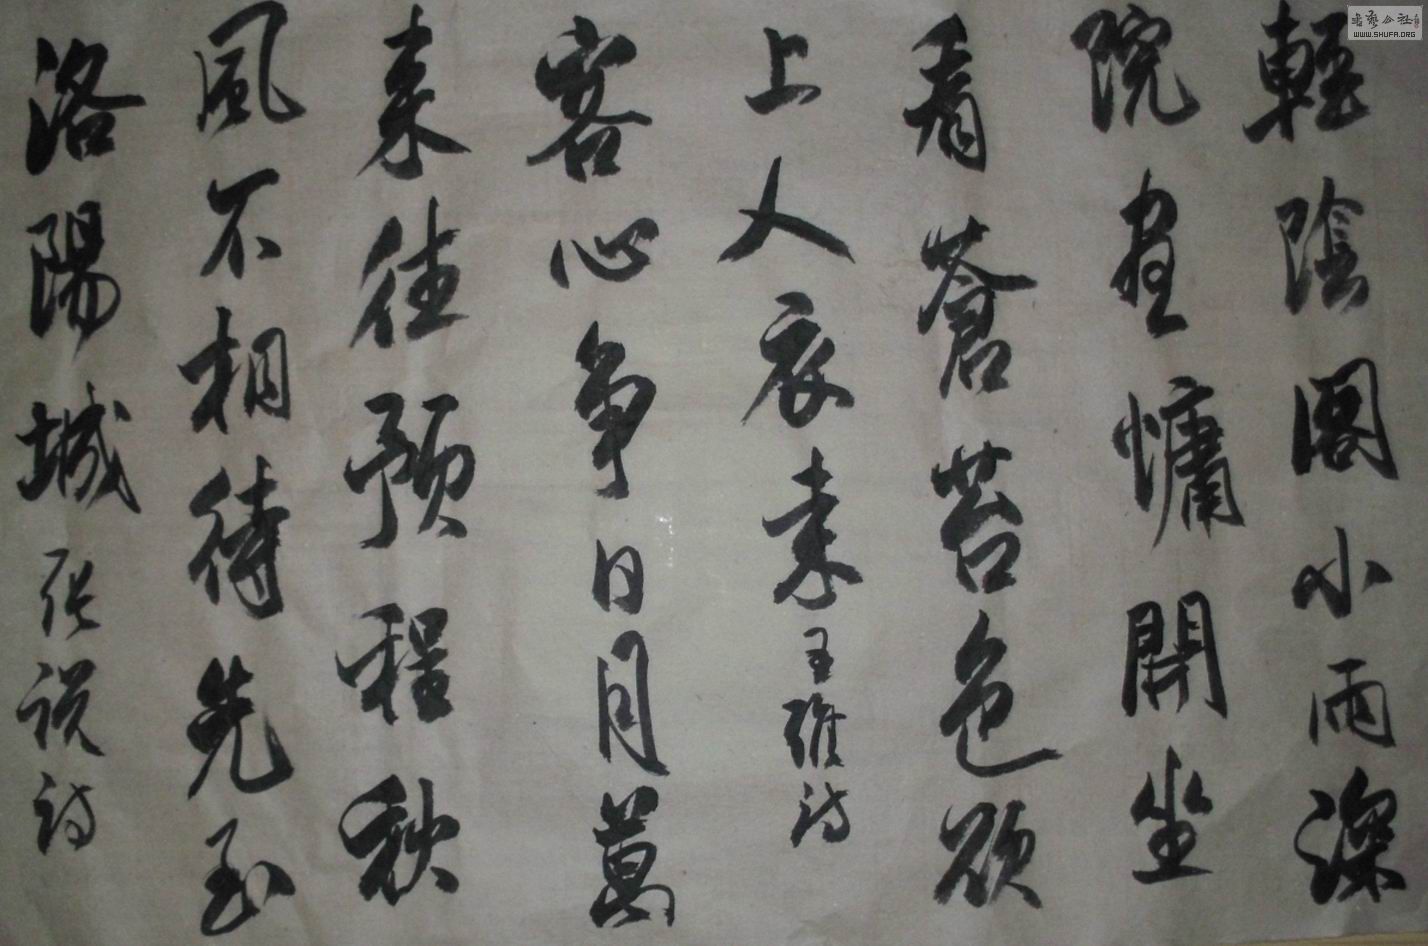 輕陰閣小雨深
院晝慵開坐
看蒼苔色欲
上人衣来王維詩
客心争日月莫
来往预程秋
風不相待先至
洛陽城张説詩
書藝公社
WWW.SHUFA.ORG